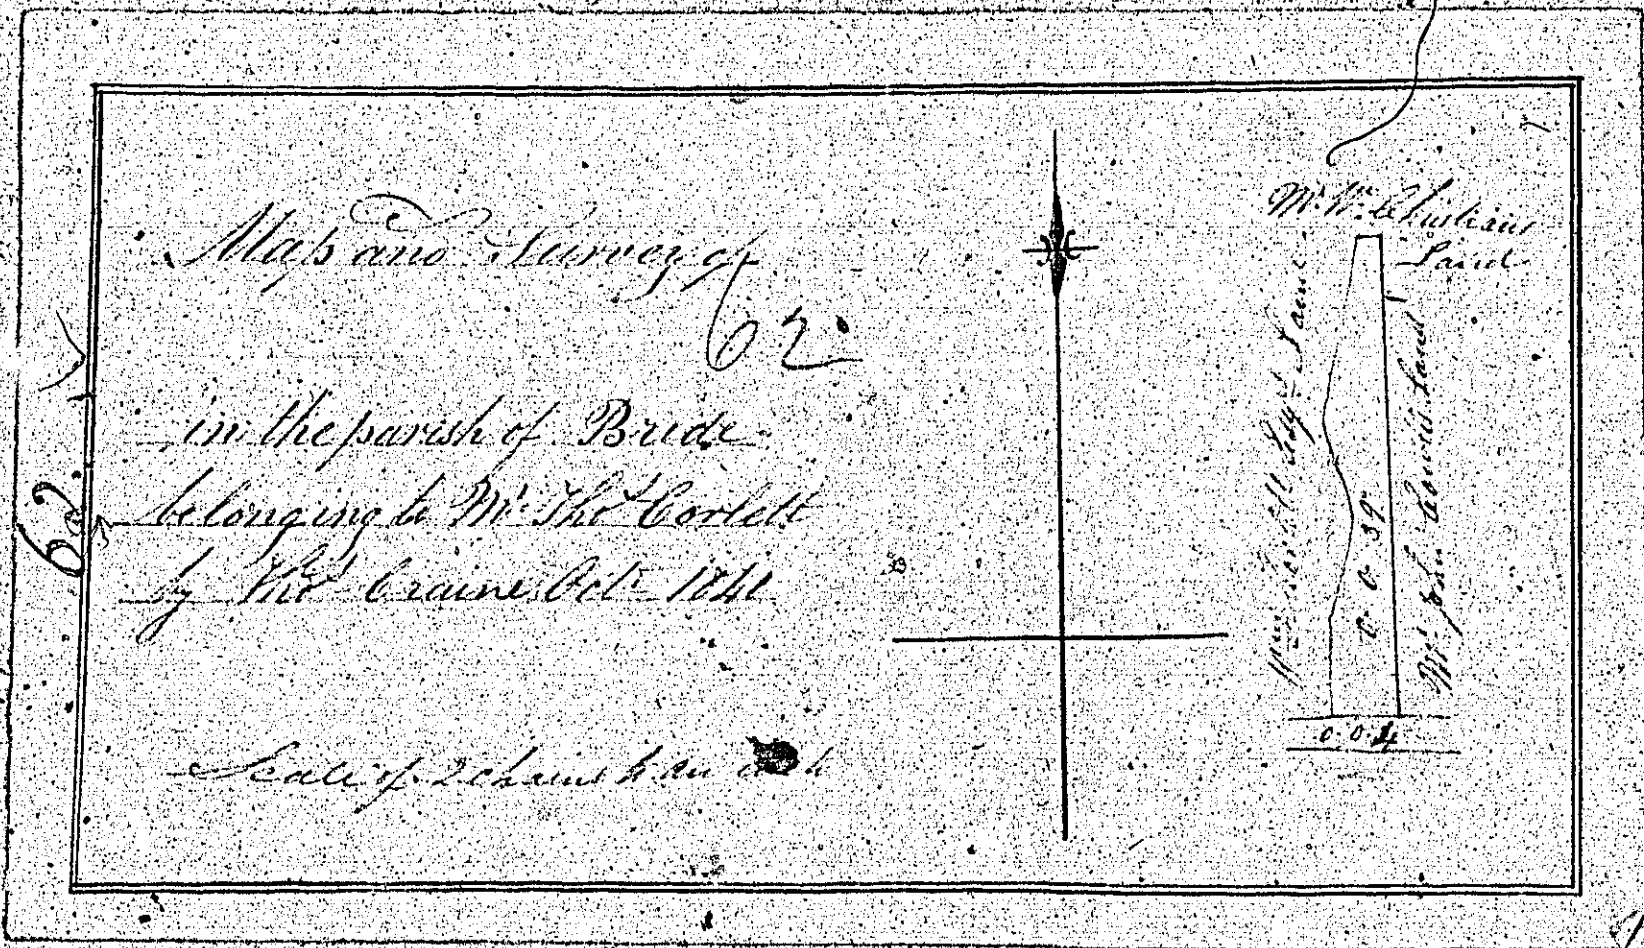 Map and Survey of
62
in the parish of Bride
belonging to Mr. Thos Corlett
by Thos Craine Octr 1841
Scale of 2 chains to an inch
62
Mr. Wm. Christians
Land
Land
0 0 39
Mr John Land
0 0 4